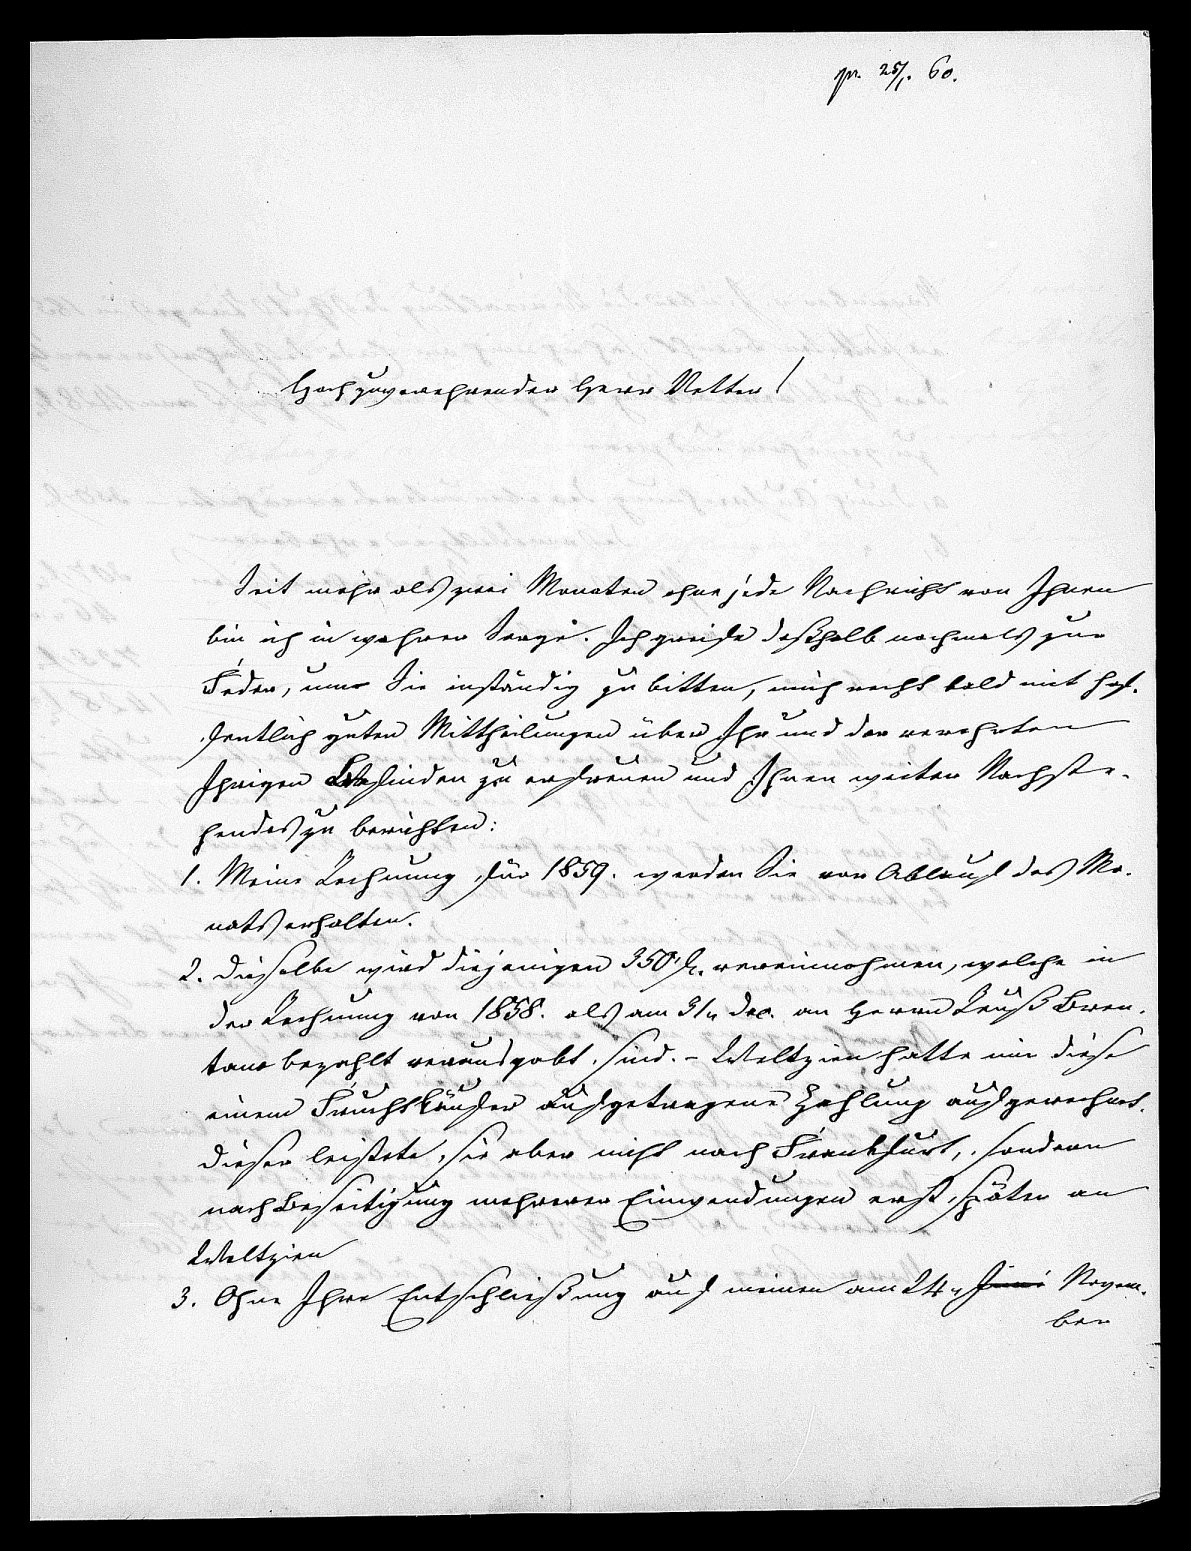 pr. 25/1. 60.
Hochzuverehrender Herr Vetter!
Seit mehr als zwei Monaten ohne jede Nachricht von Ihnen
bin ich in wahrer Sorge. Ich greife deßhalb nochmals zur
Feder, um Sie inständig zu bitten, mich recht bald mit hof-
fentlich guten Mittheilungen über Ihr und der verehrten
Ihrigen Befinden zu erfreuen und Ihnen weiter Nachste-
hendes zu berichten:
1. Meine Rechnung für 1859. werden Sie vor Ablauf des Mo-
nats erhalten.
2. Dieselbe wird diejenigen 350 f. vereinnahmen, welche in
der Rechnung von 1858. als am 31n Dec. an Herrn Reuß Bren-
tano bezahlt verausgabt sind. – Weltzien hatte mir diese
einem Fruchtkäufer aufgetragene Zahlung aufgerechnet.
Dieser leistete sie aber nicht nach Frankfurt, sondern
nach Beseitigung mehrerer Einwendungen erst später an
Weltzien
3. Ohne Ihre Entschließung auf meinen am 24n Juni Novem-
ber